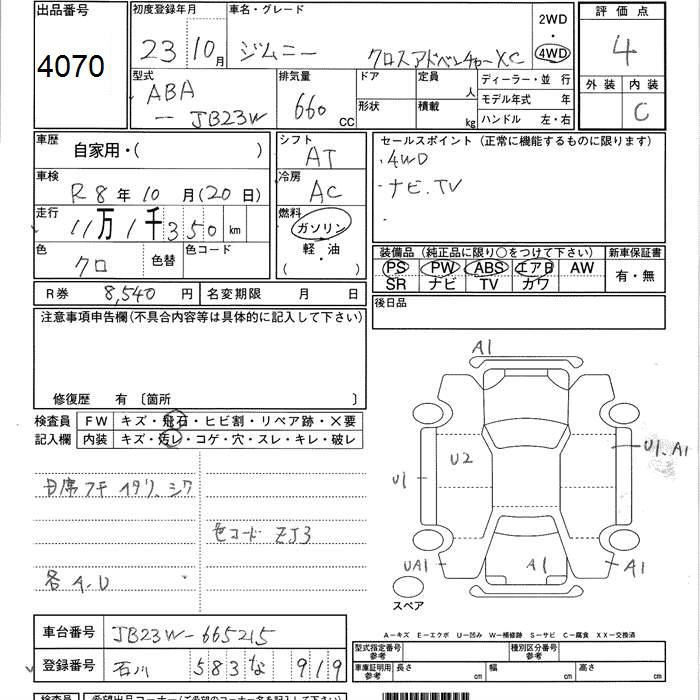 出品番号
4070
初度登録年月
23年10月
車名・グレード
ジムニー クロスアドベンチャーXC
2WD
・
4WD
評価点
4
外装 内装
C
型式
ABA
ー JB23W
排気量
660 CC
ドア
定員 人
形状
積載 kg
ディーラー・並行
モデル年式 年
ハンドル 左・右
車歴
自家用・( )
車検
R8年10月(20日)
走行
11万1千350km
色
クロ
色替
色コード
シフト
AT
冷房
AC
燃料
ガソリン
軽・油
( )
セールスポイント(正常に機能するものに限ります)
・4WD
・ナビ.TV
・
装備品(純正品に限り○をつけて下さい)
PS PW ABS エアB AW
SR ナビ TV カワ
新車保証書
有・無
R券 8,540円
名変期限 月 日
後日品
注意事項申告欄(不具合内容等は具体的に記入して下さい)
修復歴 有〔箇所 〕
検査員
記入欄
FW キズ・飛石・ヒビ割・リペア跡・×要
内装 キズ・汚レ・コゲ・穴・スレ・キレ・破レ
色コード ZJ3
各A.U
A1
U2
U1
U1、A1
UA1
A1
A1
スペア
A－キズ E－エクボ U－凹み W－補修跡 S－サビ C－腐食 XX－交換済
車台番号 JB23W-665215
登録番号 石川 583 な 919
型式指定番号
参考
種別区分番号
参考
車庫証明用
参考
長さ cm 幅 cm 高さ cm
検査員
希望出品コーナー(ご希望のコーナー名を記入下さい)